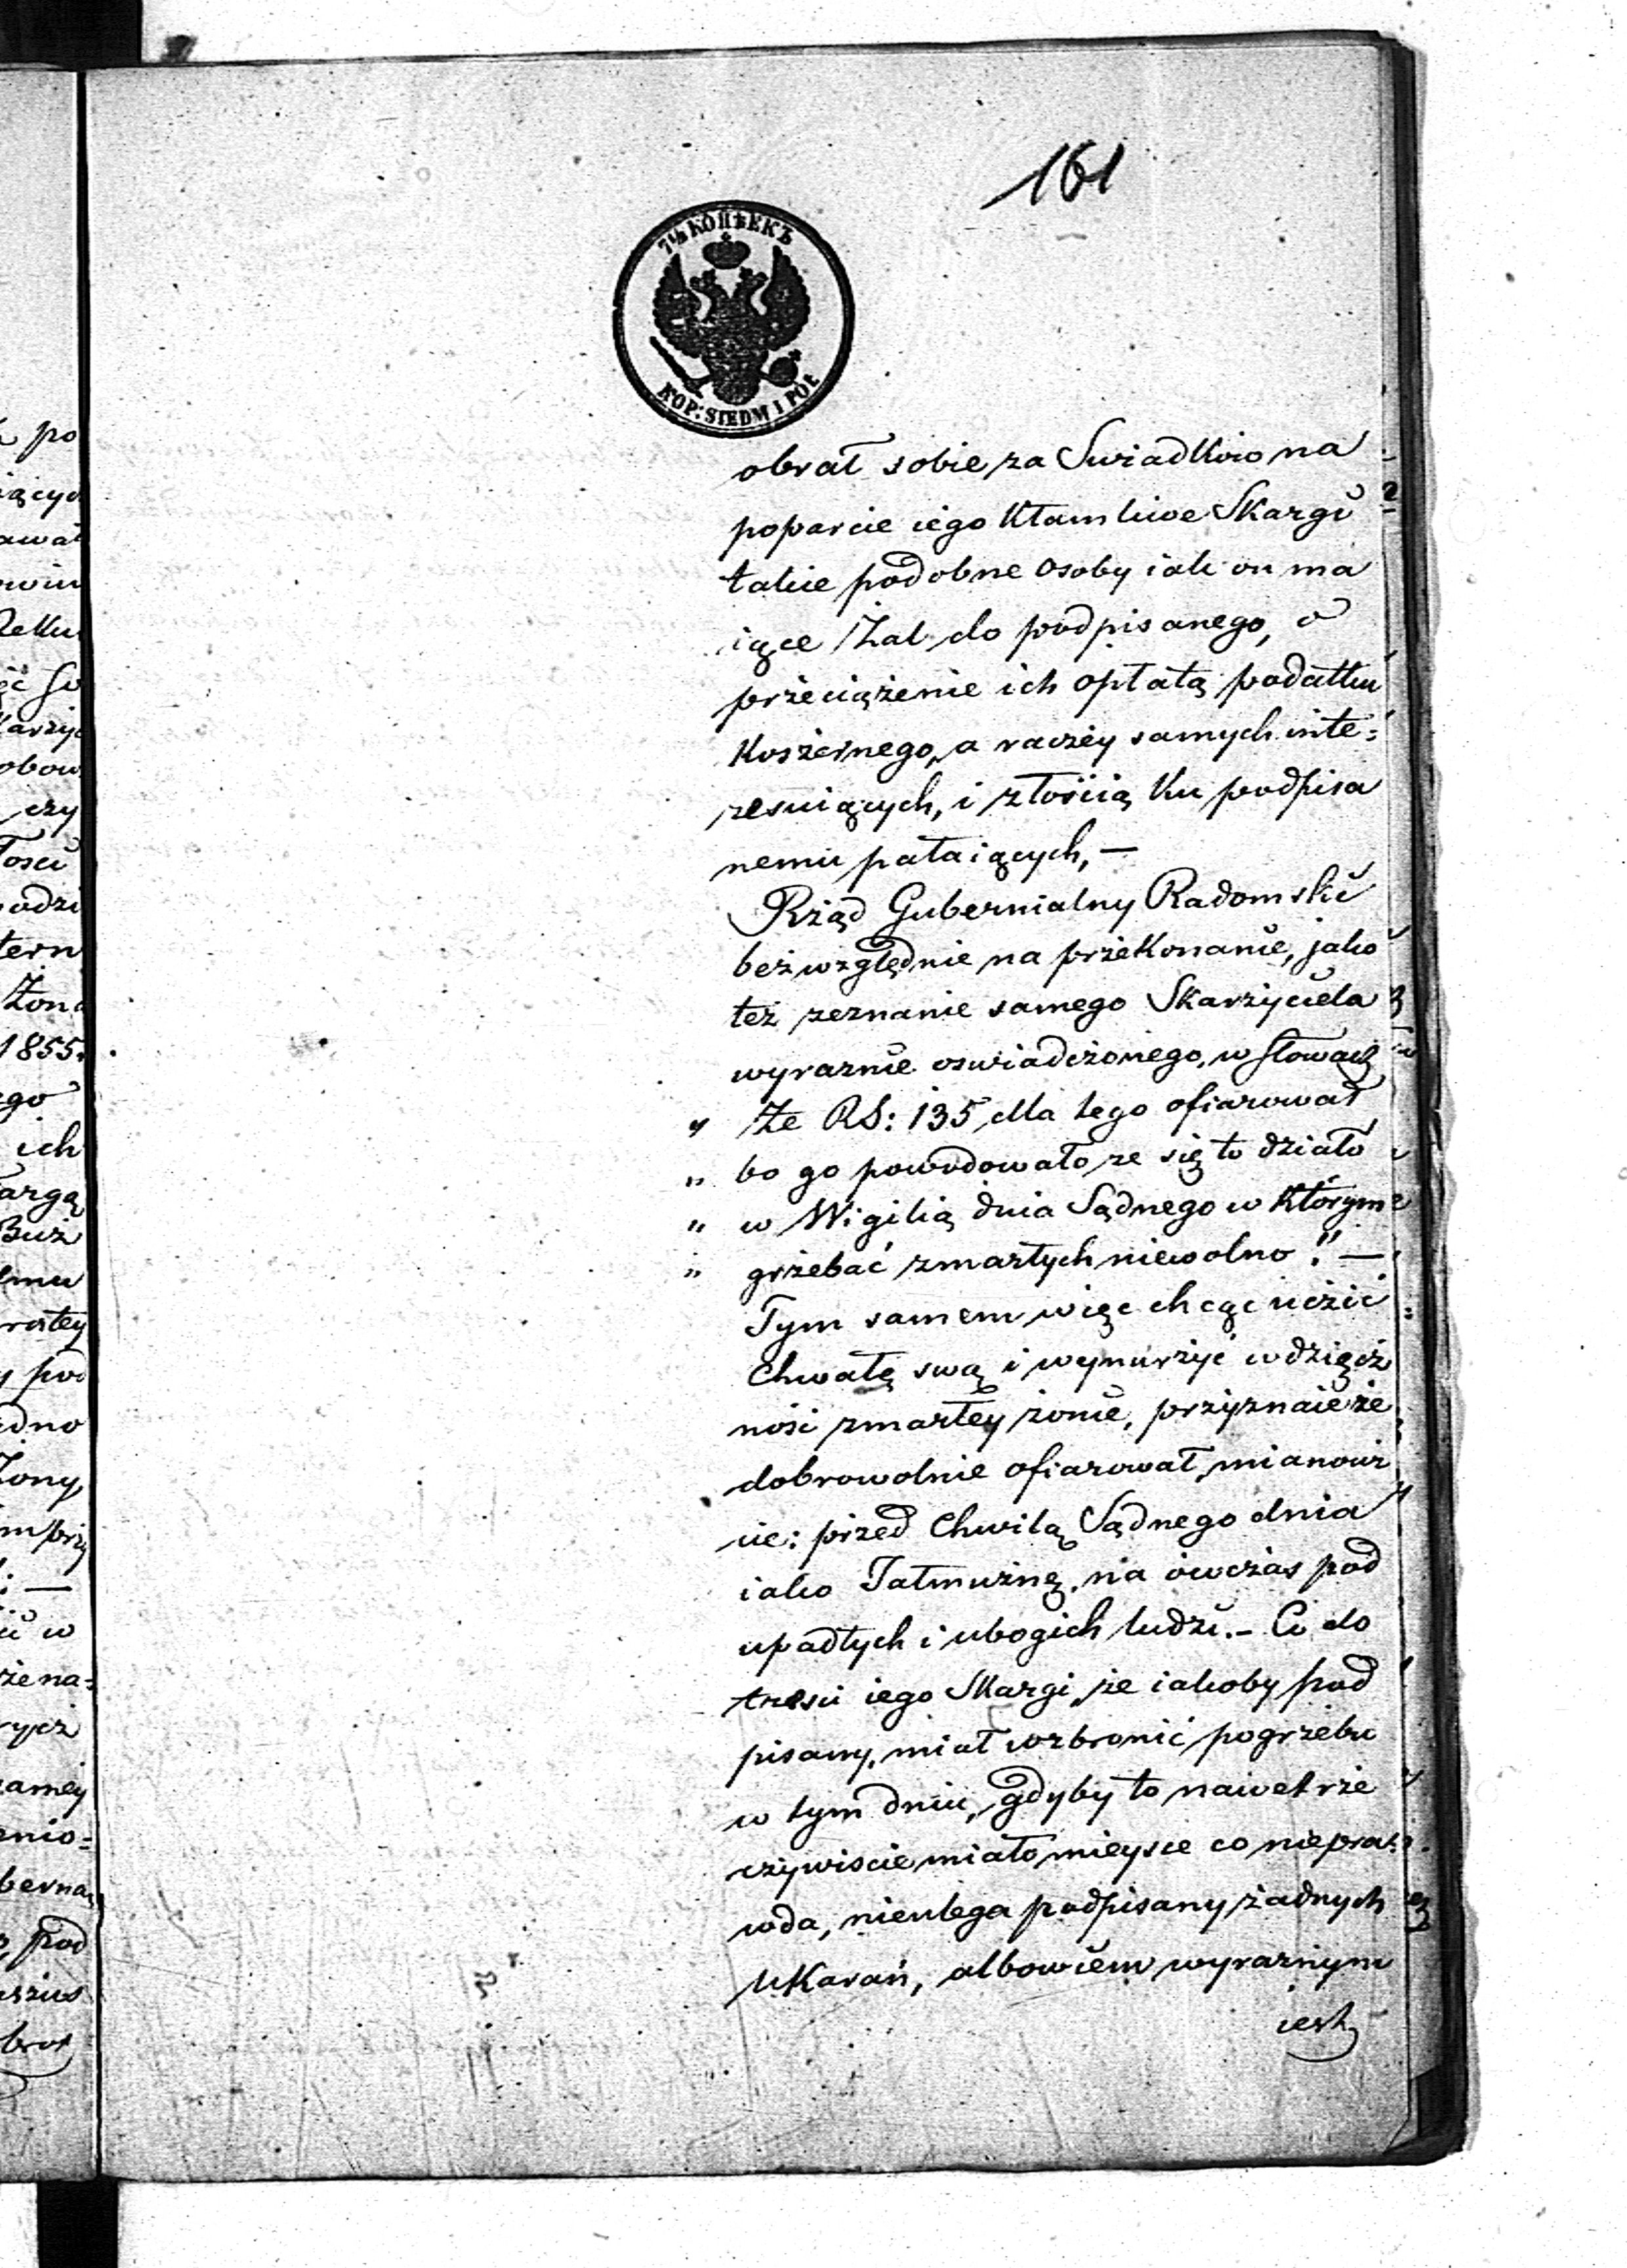 161
7½ КОПѢЕКЪ
KOP: SIEDM I PÓŁ
obrał sobie za Swiadków na
poparcie iego Kłamliwe Skargi
takie podobne osoby iak on ma
iące Żal do podpisanego, o
przeciążenie ich opłatą podatku
Koszernego, a raczéy samych inte=
resuiących, i złością ku podpisa
nemu pałaiących, —
Rząd Gubernialny Radomski
bezwzględnie na przekonanie, jako
też zeznanie samego Skarzyciela
wyraznie oswiadczonego, w słowach
„ Że RS: 135 dla tego ofiarował
„ bo go powodowało ze się to działo
„ w Wigilią dnia Sądnego w Którym
„ grzebać zmarłych niewolno." —
Tym samem więc chcąc uczić
Chwałę swą i wynurzyć wdzięcz
nosć zmarłéy żonie, przyznaie że
dobrowolnie ofiarował, mianowi
cie: przed Chwilą Sądnego dnia
iako Jałmużnę, na ówczas pod
upadłych i ubogich ludzi. – Co do
tresci iego Skargi, że iakoby pod
pisany, miał wzbronić pogrzebu
w tym dniu, gdyby to nawet rze
czywiscie miało mieysce co niepra=
wda, nieulega podpisany żadnych
Ukarań, albowiem wyraznym
iest
po
iącyc
awał
czy
1855.
ich
Żony
pod